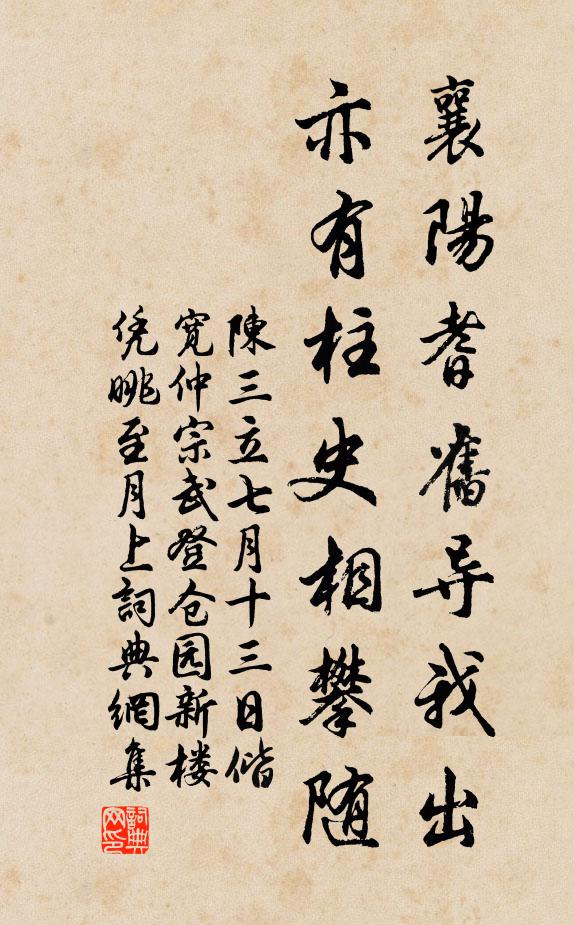 襄陽耆舊导我出
亦有柱史相攀随
陳三立七月十三日偕
寛仲宗武登仓园新楼
凭眺至月上詞典網集
詞典
网印